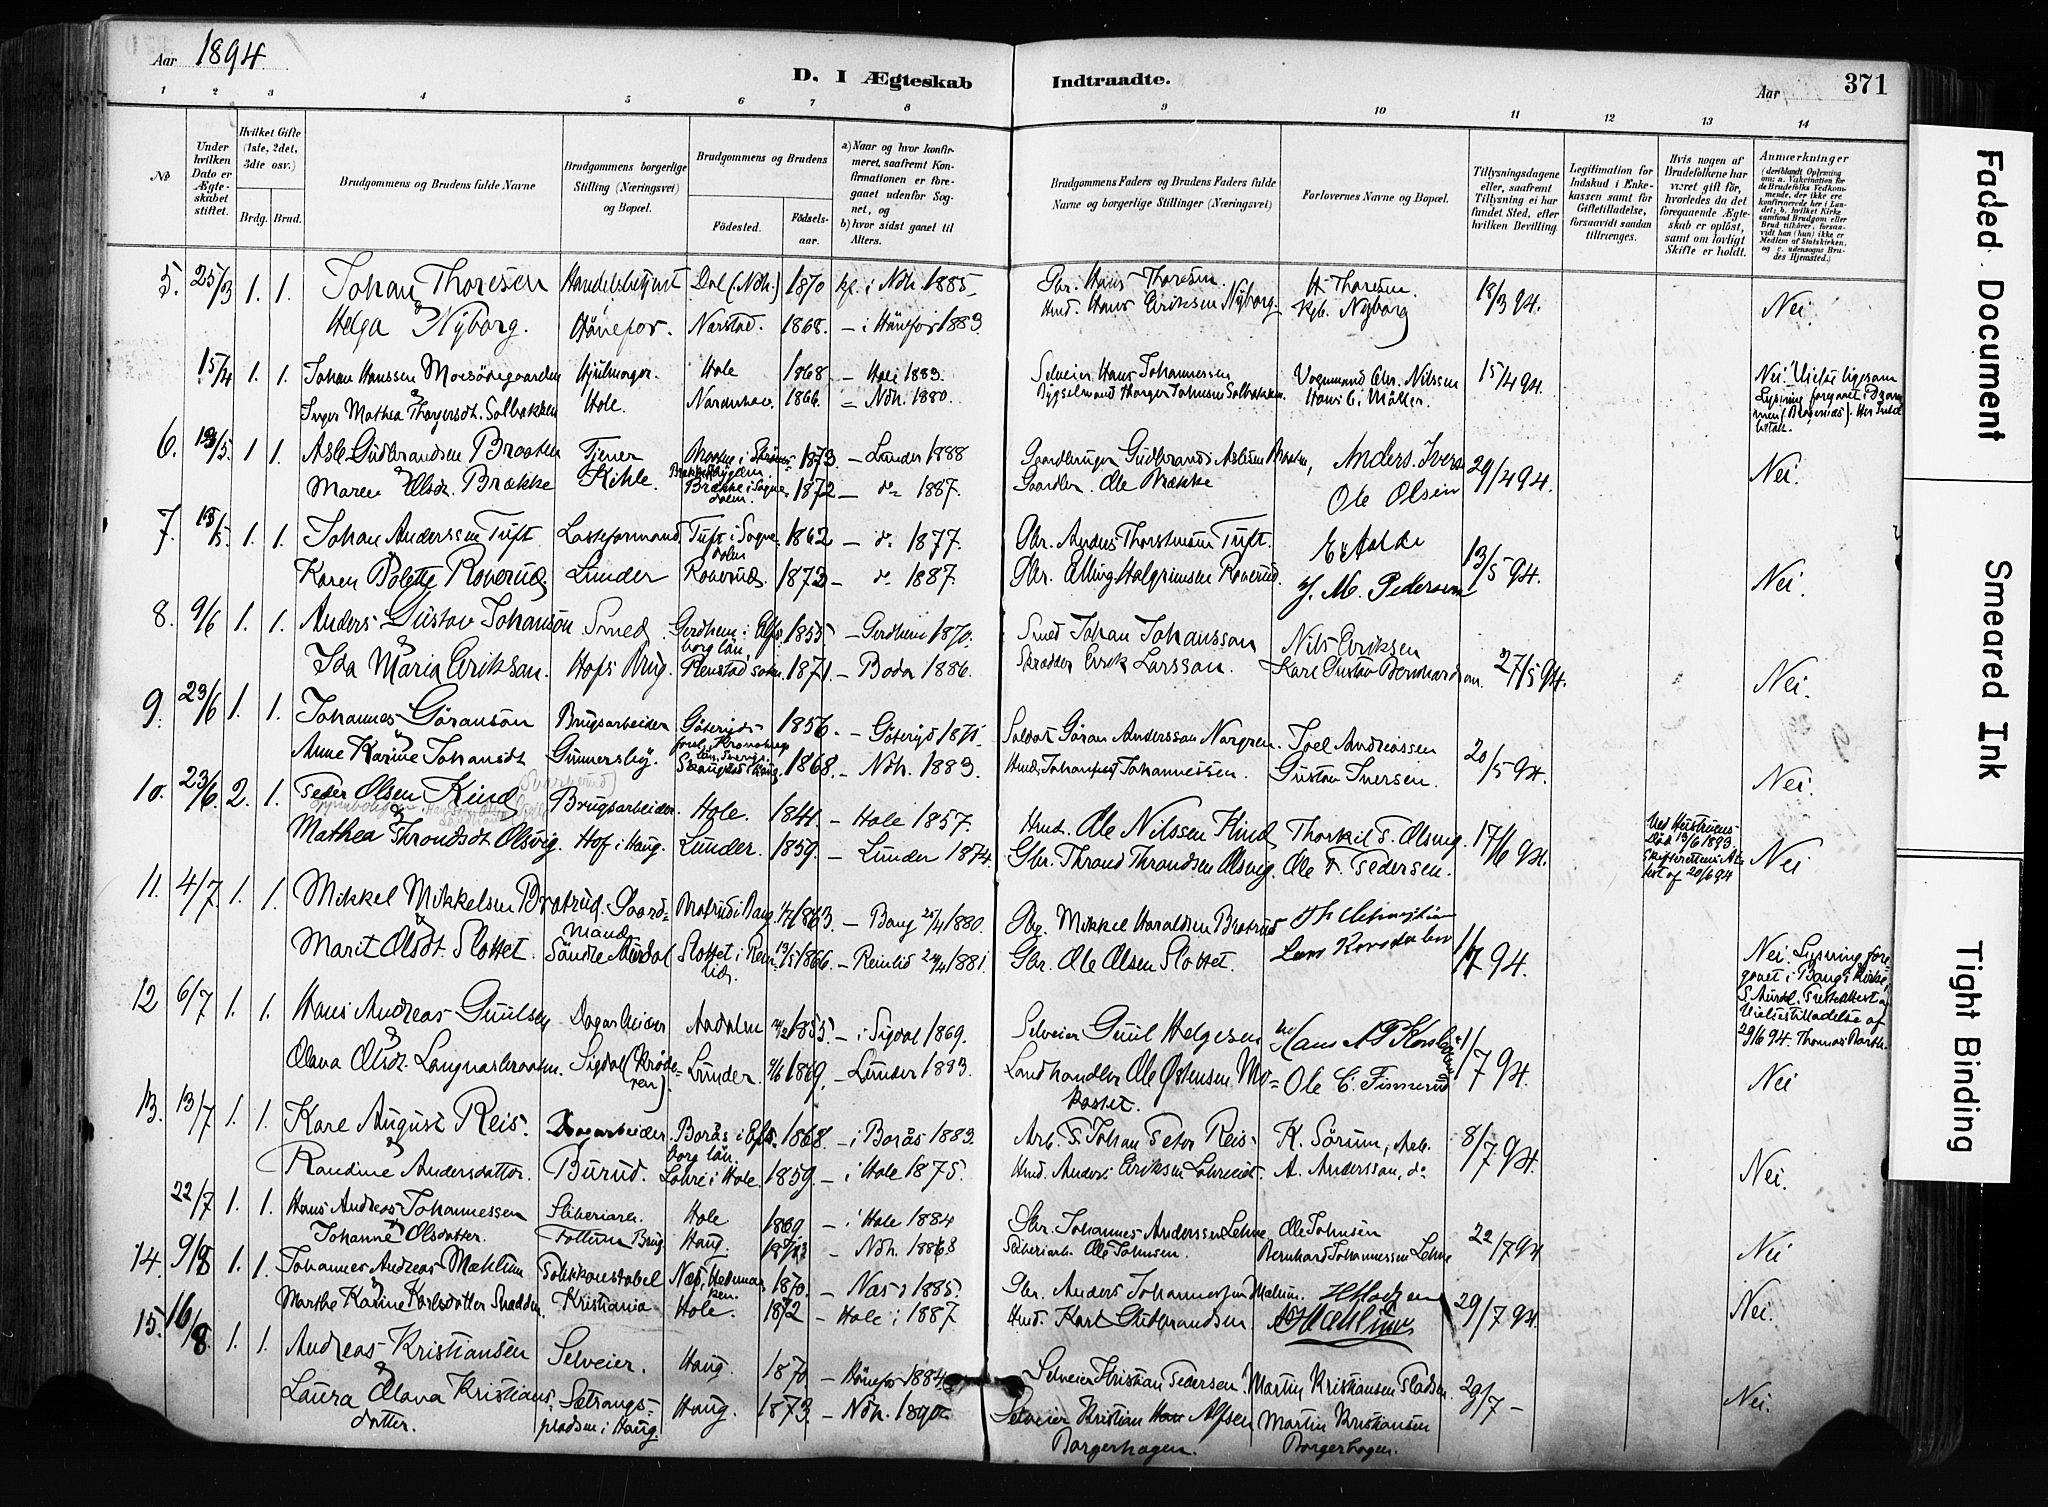 Aar 1894.
D. I Ægteskab Indtraadte.
Aar
371
1 2 3 4 5 6 7 8 9 10 11 12 13 14
No
Under hvilken Dato er Ægteskabet stiftet.
Hvilket Gifte (1ste, 2det, 3die osv.)
Brdg. Brud.
Brudgommens og Brudens fulde Navne
Brudgommens borgerlige Stilling (Næringsvei) og Bopæl.
Brudgommens og Brudens
Fødested.
Fødselsaar.
a) Naar og hvor konfirmeret, saafremt Konfirmationen er foregaaet udenfor Sognet, og
b) hvor sidst gaaet til Alters.
Brudgommens Faders og Brudens Faders fulde Navne og borgerlige Stillinger (Næringsvei)
Forlovernes Navne og Bopæl.
Tillysningsdagene eller, saafremt Tillysning ei har fundet Sted, efter hvilken Bevilling.
Legitimation for Indskud i Enkekassen samt for Giftetilladelse, forsaavidt saadan tiltrænges.
Hvis nogen af Brudefolkene har været gift før, hvorledes da det foregaaende Ægteskab er opløst, samt om lovligt Skifte er holdt.
Anmærkninger
5. 25/3 1. 1. Johan Thoresen Handelsbetjent Dal (Ndh.) 1870 kf. i Ndh. 1885 Gbr. Hans Thoresen. H. Thoresen. 18/3 94. Nei.
& Helga Nyborg. Hönefos. Narstad. 1868. – i Hönefos 1883. Hmd. Hans Eriksen Nyborg. Kgb. Nyborg
15/4 1. 1. Johan Hanssen Moesönegaarden Hjulmager. Hole 1868 – Hole 1883. Selveier Hans Johannessen Vognmand Chr. Nilssen 15/4 94. Nei.
Inger Mathea Thorgersdt. Solbakken Hole. Norderhov. 1866. – Ndh. 1880. Bygselmand Thorger Johnsen Solbakken. Hans C. Möller.
6. 13/5. 1 1 Asle Gudbrandsen Braaten Tjener 1873. – Lunder 1888 Gaardbruger Gudbrand Aslesen Braaten, Anders Ivers 29/4 94. Nei.
& Maren Olsdt. Brække Kihle. Brække i Sognedalen. 1872 – do 1887. Gaardbr. Ole Brække Ole Olsen
7. 13/5. 1. 1. Johan Anderssen Tuft Losseformand Tuft i Sognedalen 1862 – do 1877. Gbr. Anders Thorstensen Tuft. 13/5 94. Nei.
Karen Bolette Roverud Lunder Roverud. 1873 – do 1887. Gbr. Elling Halgrimsen Roverud. M. Pedersen
8. 9/6 1. 1. Anders Gustav Johanson Smed Gerdhem i Elfsborg län. 1855 – Gerdhem 1870. Smed Johan Johansson Nils Eriksen 27/5 94. Nei.
& Ida Maria Erikson. Hofs Brug. 1871. – Boda 1886. Skrædder Erik Larsson. Karl Gustav Bernhardson.
9. 23/6 1. 1. Johannes Göranson Brugsarbeider Göteryds 1856. – Göteryd 1871. Soldat Göran Andersson Norgren. Joel Andreassen 20/5 94. Nei.
Anne Karine Johansdt Gunnersby. 1868. – Ndh. 1883. Hmd. Johannes Johannessen. Gustav Iversen.
10. 23/6. 2. 1. Peder Olsen Kind Brugsarbeider Hole. 1841. – Hole 1857. Hmd. Ole Nilssen Kind Thorkil T. Olsvig. 17/6 94. Ved Hustruens Död 13/6 1893. Nei
& Mathea Throndsdt Olsvig. Hof i Haug. Lunder. 1859. – Lunder 1874. Gbr. Thrond Throndsen Olsvig. Ole T. Pedersen.
11. 4/7 1. 1 Mikkel Mikkelsen Brotrud. Gaardmand Brotrud i Bang 1863. – Bang 25/4 1880. Gbr. Mikkel Haraldsen Brotrud
& Marit Olsdt. Slottet. Söndre Aurdal Slottet i Reinlid. 13/5 1866. – Reinlid 24/4 1881. Gbr. Ole Olsen Slottet. 1/7 94. Nei. Lysning foregaaet i Bangs Kirke, S. Aurdal.
29/6 94. Thomas Barth.
12 6/7 1. 1. Hans Andreas Guulsen Dagarbeider Aadalen 1855 – i Sigdal 1869. Selveier Guul Helgesen 1/7 94. Nei
& Olava Olsdt. Langnasbraaten. Sigdal (Kröderen). Lunder. 1869. – Lunder 1883. Landhandler Ole Østensen Mokastet. Ole C. Finnerud
13. 13/7 1. 1. Karl August Reis. Dagarbeider. Borås i Elfsborg län. 1868. – i Borås 1883. Arb. F. Johan Peter Reis. K. Sörum, Arb. 8/7 94. Nei.
& Randine Andersdatter. Burud. Lohre i Hole. 1859. – i Hole 1875. Hmd. Anders Eriksen Lohreeiet. A. Andersson, do
22/7 1. 1. Hans Andreas Johannessen Sliberiarb. Hole 1869. – i Hole 1884 Gbr. Johannes Anderssen Lehne Ole Johnsen 22/7 94 Nei
Johanne Olsdatter. Follum Brug Haug. – Ndh. 1888 Sliberiarb. Ole Johnsen. Bernhard Johannessen Lehne
14. 9/8 1. 1. Johannes Andreas Mæhlum Politikonstabel Næs, Hedemarken. 1870. – Næs 1885. Gbr. Anders Johannessen Mælum. 29/7 94. Nei.
Marthe Karine Karlsdatter Kristiania Hole. 1872 – Hole i 1887 Hmd. Karl Gudbrandsen
15. 16/8. 1. 1. Andreas Kristiansen Selveier. Haug. 1870 – Hönefos 1884. Selveier Kristian Pedersen. Martin Kristiansen Pladsen. 29/7 – Nei.
& Laura Olava Kristiansdatter. Setrangspladsen i Haug. Haug. 1873. – Ndh. 1890. Selveier Kristian Alfsen Borgerhagen. Martin Kristiansen Borgerhagen.
Faded Document
Smeared Ink
Tight Binding